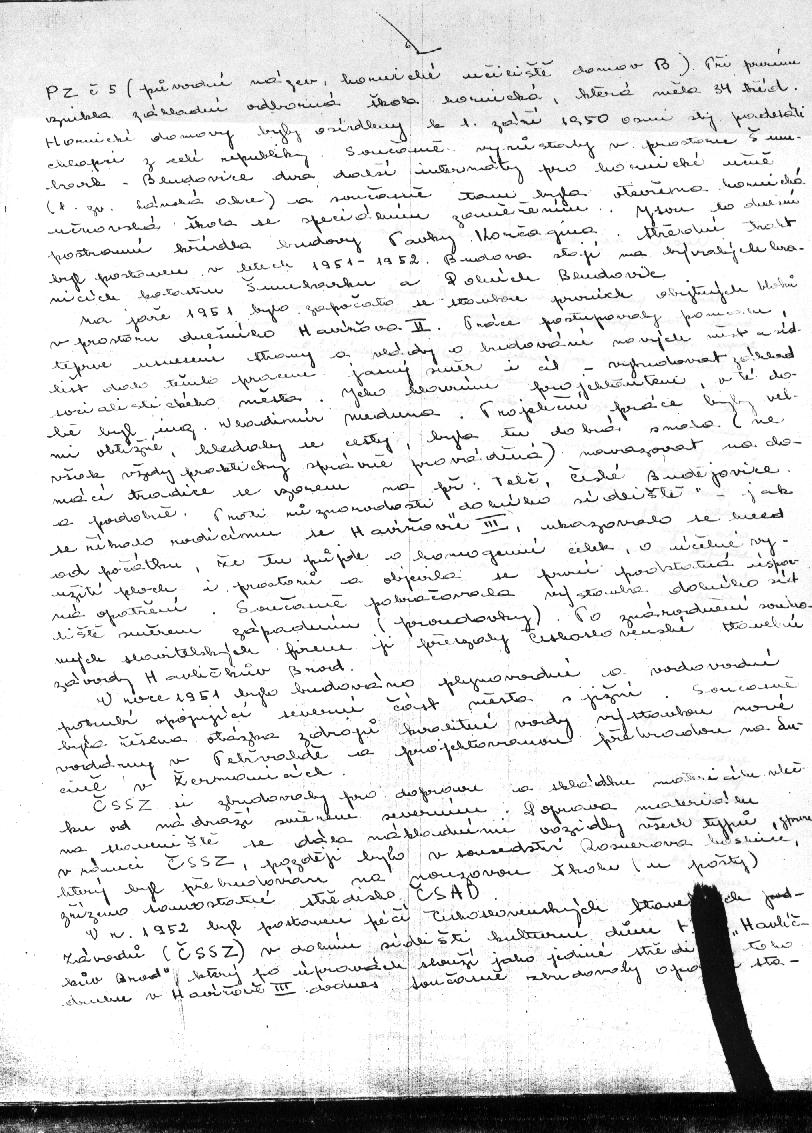 PZ č 5 (původní název, hornické učiliště domov B) Při prvním
vznikla základní odborná škola hornická, která měla 34 tříd.
Hornické domovy byly osídleny k 1. září 1950 osmi sty padesáti
chlapci z celé republiky. Současně vyrůstaly v prostoru Šum-
bark - Bludovice dva další internáty pro hornické učně
(t. zv. lánská obce) a současně tam byla otevřena hornická
učňovská škola se speciálním zaměřením. Jsou to dnešní
postranní křídla budovy Pavky Korčagina. Střední trakt
byl postaven v letech 1951-1952. Budova stojí na bývalých hra-
nicích katastru Šumbarku a Dolních Bludovic
Na jaře 1951 bylo započato se stavbou prvních obytných bloků
v prostoru dnešního Havířova II. Práce postupovaly pomalu,
teprve usnesení strany a vlády o budování nových měst a síd
lišť dalo těmto pracem jasný směr i cíl - vybudovat základ
socialistického města. Jeho hlavním projektantem, v té do-
bě byl ing. Vladimír Meduna. Projekční práce byly vel-
mi obtížné, hledaly se cesty, byla tu dobrá snaha (ne
však vždy prakticky správně prováděná) navazovat na do-
mácí tradice se vzorem na př. Telč, České Budějovice.
a podobně. Proti různorodosti "dolního sídliště" - jak
se říkalo rodícímu se Havířovu III, ukazovalo se hned
od počátku, že tu půjde o homogenní celek, o účelné vy-
užití ploch i prostorů a objevila se první podstatná úspor
ná opatření. Současně pokračovala výstavba dolního síd
liště směrem západním (proudovky). Po znárodnění soukro-
mých stavitelských firem ji převzaly Československé stavební
závody Havlíčkův Brod.
V roce 1951 bylo budováno plynovodní a vodovodní
potrubí spojující severní část města s jižní. Současně
byla řešena otázka zdrojů kvalitní vody výstavbou nové
vodárny v Petřvaldě a projektovanou přehradou na Lu-
cině v Žermanicích.
ČSSZ si zbudovaly pro dopravu a skládku materiálu vleč-
ku od nádraží směrem severním. Doprava materiálu
na staveniště se dála nákladními vozidly všech typů,
v rámci ČSSZ, později bylo v sousedství Rosnerova hostince,
který byl přebudován na nouzovou školu (u pošty)
zřízeno samostatné středisko ČSAD
V r. 1952 byl postaven péčí Československých stavebních
závodů (ČSSZ) v dolním sídlišti kulturní dům "Havlíč-
kův Brod", který po úpravách slouží jako jedné
druhu v Havířově III dodnes současně zbudovaly sta-